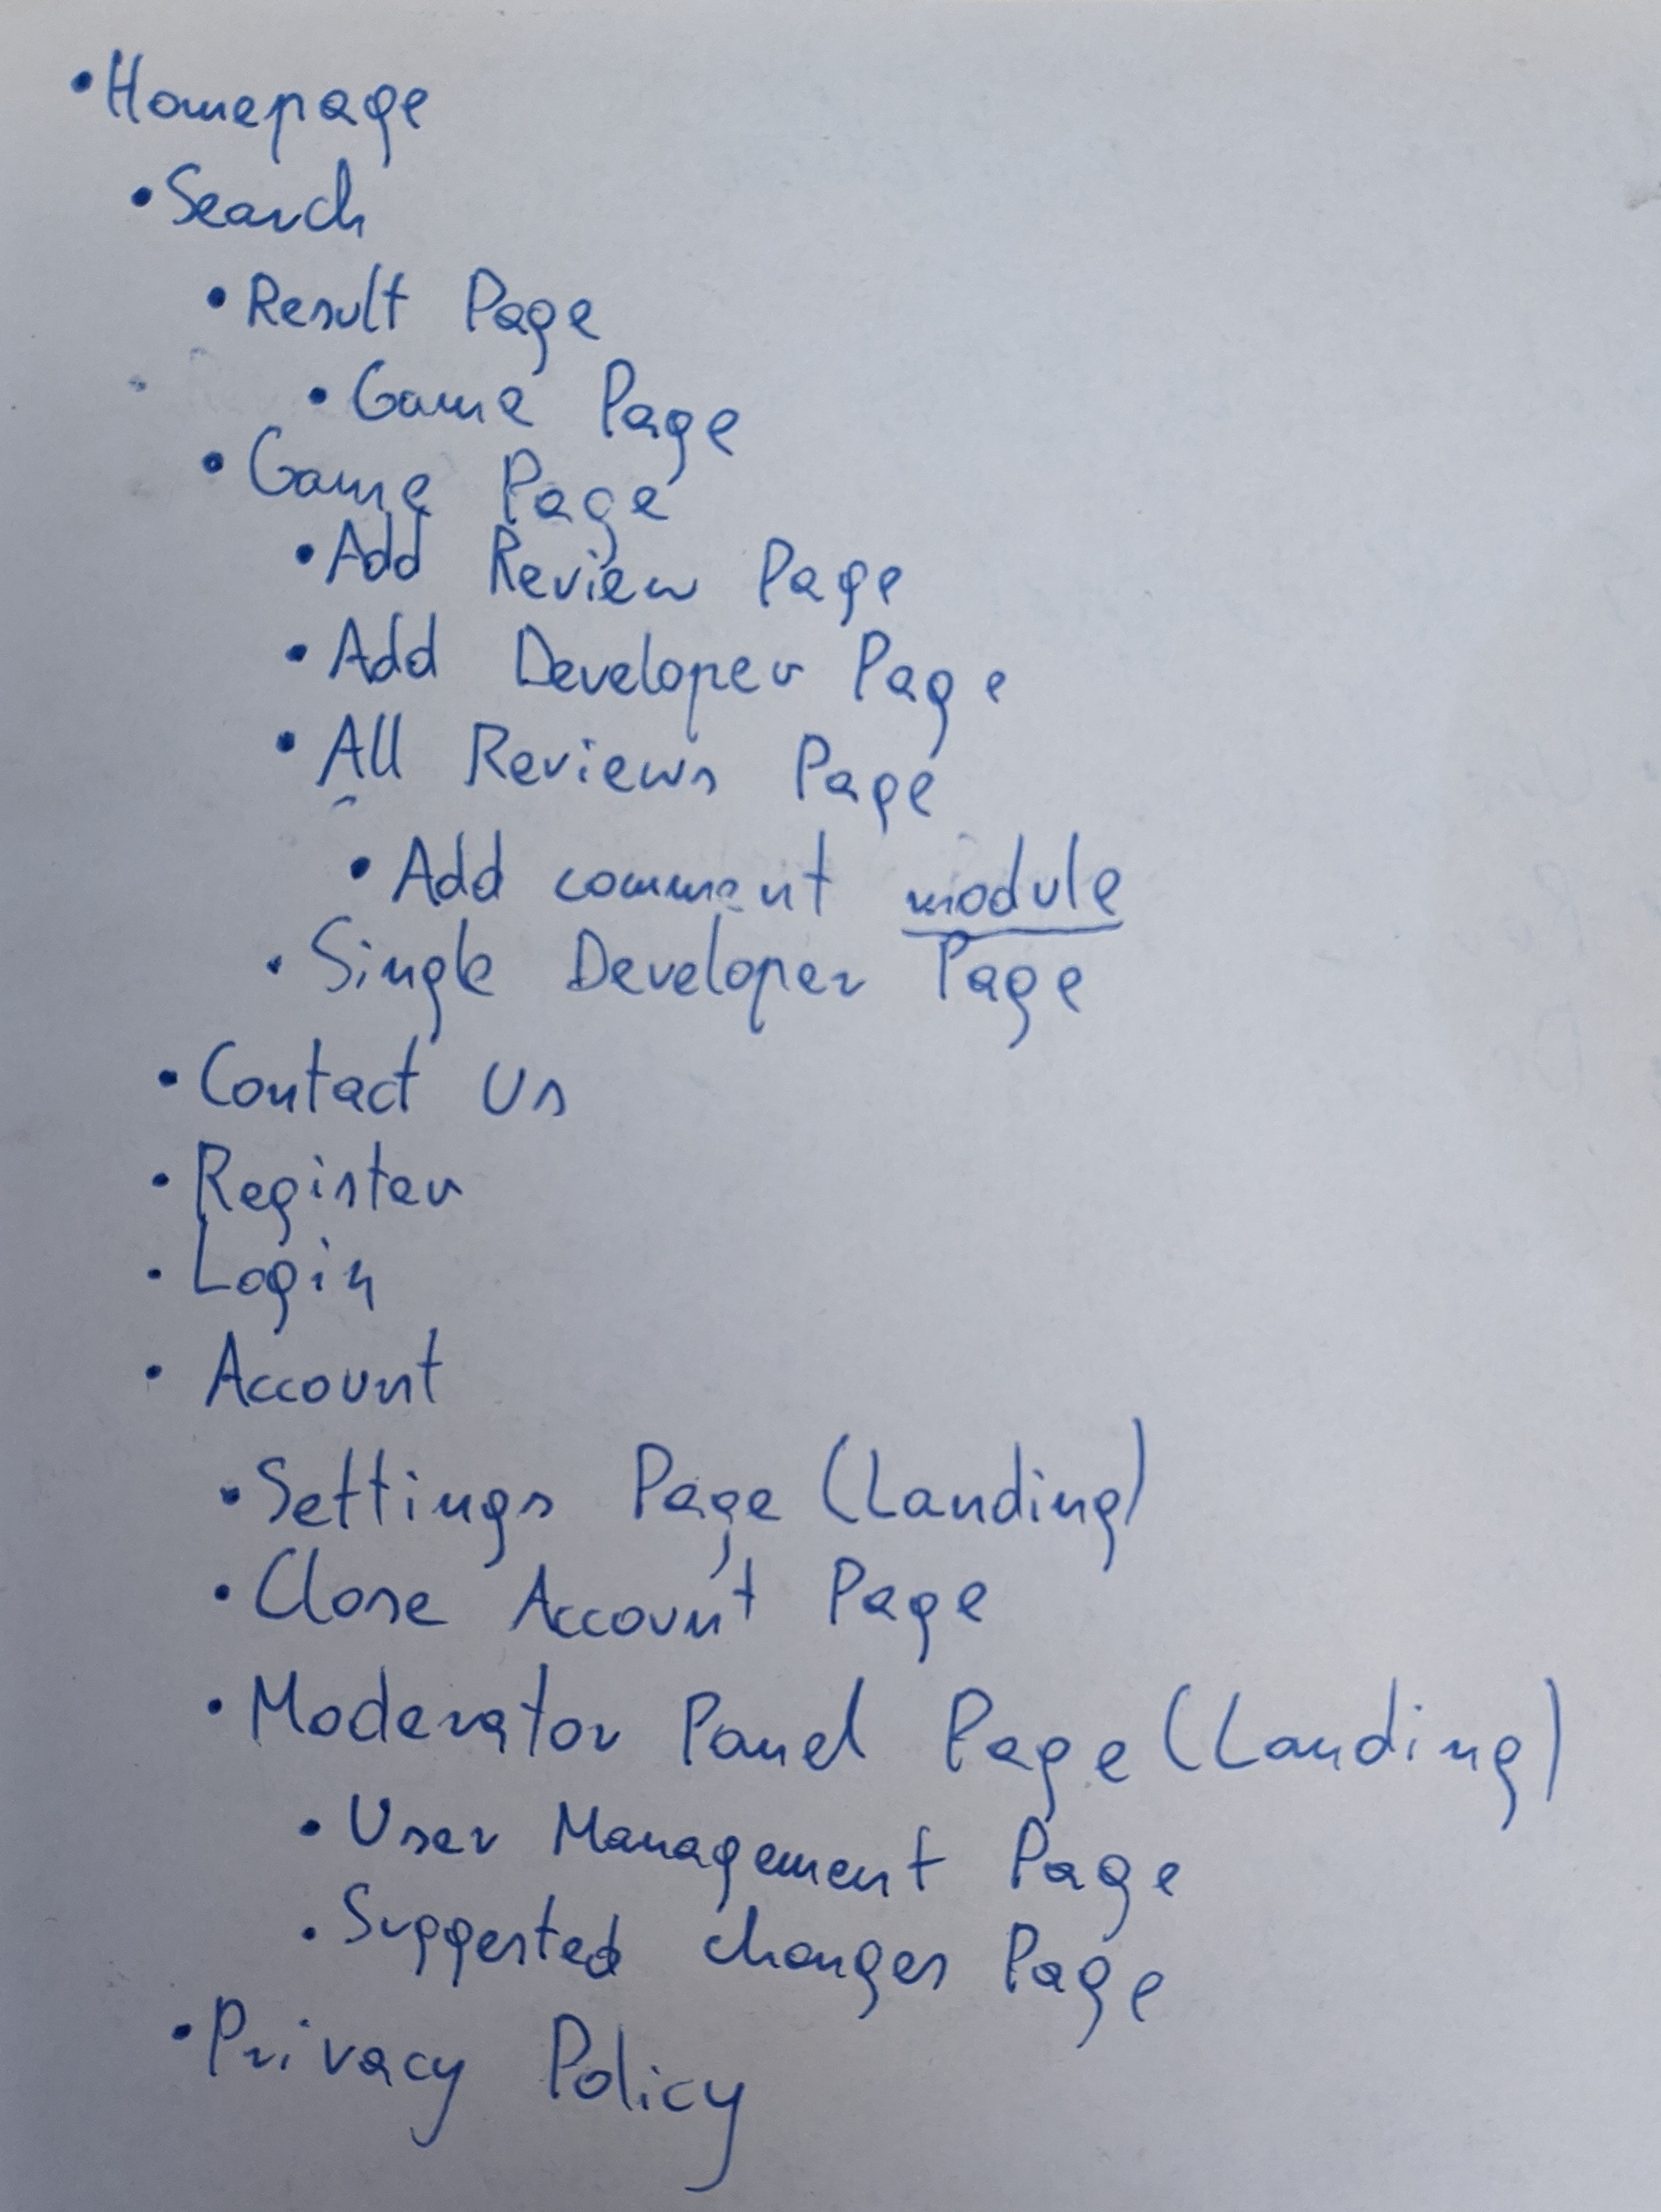 • Homepage
• Search
• Result Page
• Game Page
• Game Page
• Add Review Page
• Add Developer Page
• All Reviews Page
• Add comment module
• Single Developer Page
• Contact Us
• Register
• Login
• Account
• Settings Page (Landing)
• Close Account Page
• Moderator Panel Page (Landing)
• User Management Page
• Suggested changes Page
• Privacy Policy